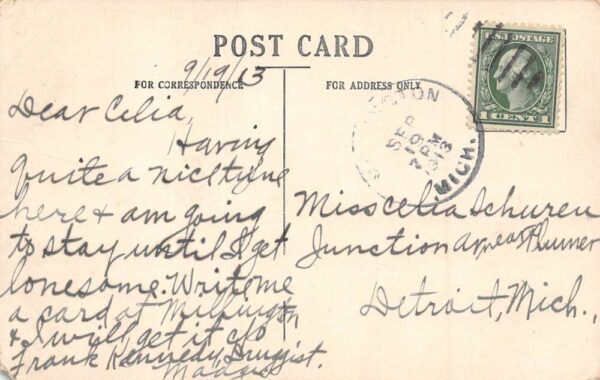 POST CARD
9/19/13
FOR CORRESPONDENCE
FOR ADDRESS ONLY
Dear Celia,
Having
quite a nice time
here & am going
to stay until I get
lonesome. Write me
a card at Millington
& I will get it c/o
Frank Kennedy, Druggist.
U.S. POSTAGE
1 CENT 1
TON
SEP
19
PM
1913
MICH.
Miss Celia Schuren
Junction Ave near Plumer
Detroit, Mich.,